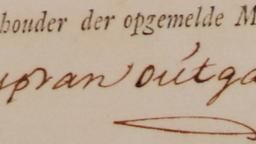 houder der opgemelde M
pran outga